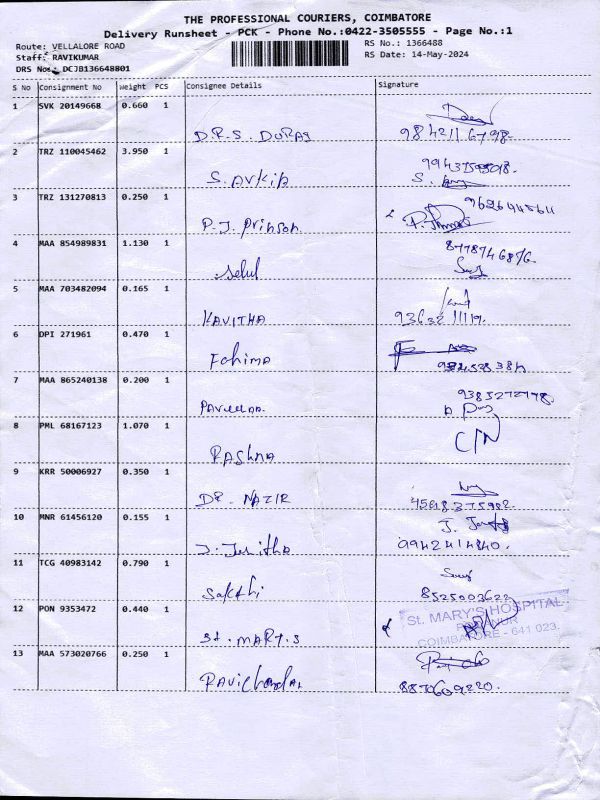 THE PROFESSIONAL COURIERS, COIMBATORE
Delivery Runsheet - PCK - Phone No.:0422-3505555 - Page No.:1
Route: VELLALORE ROAD
RS No.: 1366488
Staff: RAVIKUMAR
RS Date: 14-May-2024
DRS No.: DCJB136648801
S No Consignment No Weight PCS Consignee Details Signature
1 SVK 20149668 0.660 1
D.R.S. DURAJ
2 TRZ 110045462 3.950 1
S.
3 TRZ 131270813 0.250 1
P.J. Prinson
4 MAA 854989831 1.130 1
Selul
5 MAA 703482094 0.165 1
KAVITHA 93632 11119.
6 DPI 271961 0.470 1
Fahima
7 MAA 865240138 0.200 1
Paveena
8 PML 68167123 1.070 1
RASHNA
9 KRR 50006927 0.350 1
DR. NAZIR
10 MNR 61456120 0.155 1
J. Jenitha 9942414840.
11 TCG 40983142 0.790 1
Sakthi 8525003622
12 PON 9353472 0.440 1
St. MARY'S HOSPITAL
COIMBATORE - 641 023.
St. MARY.S
13 MAA 573020766 0.250 1
Ravichandar 8870609220.